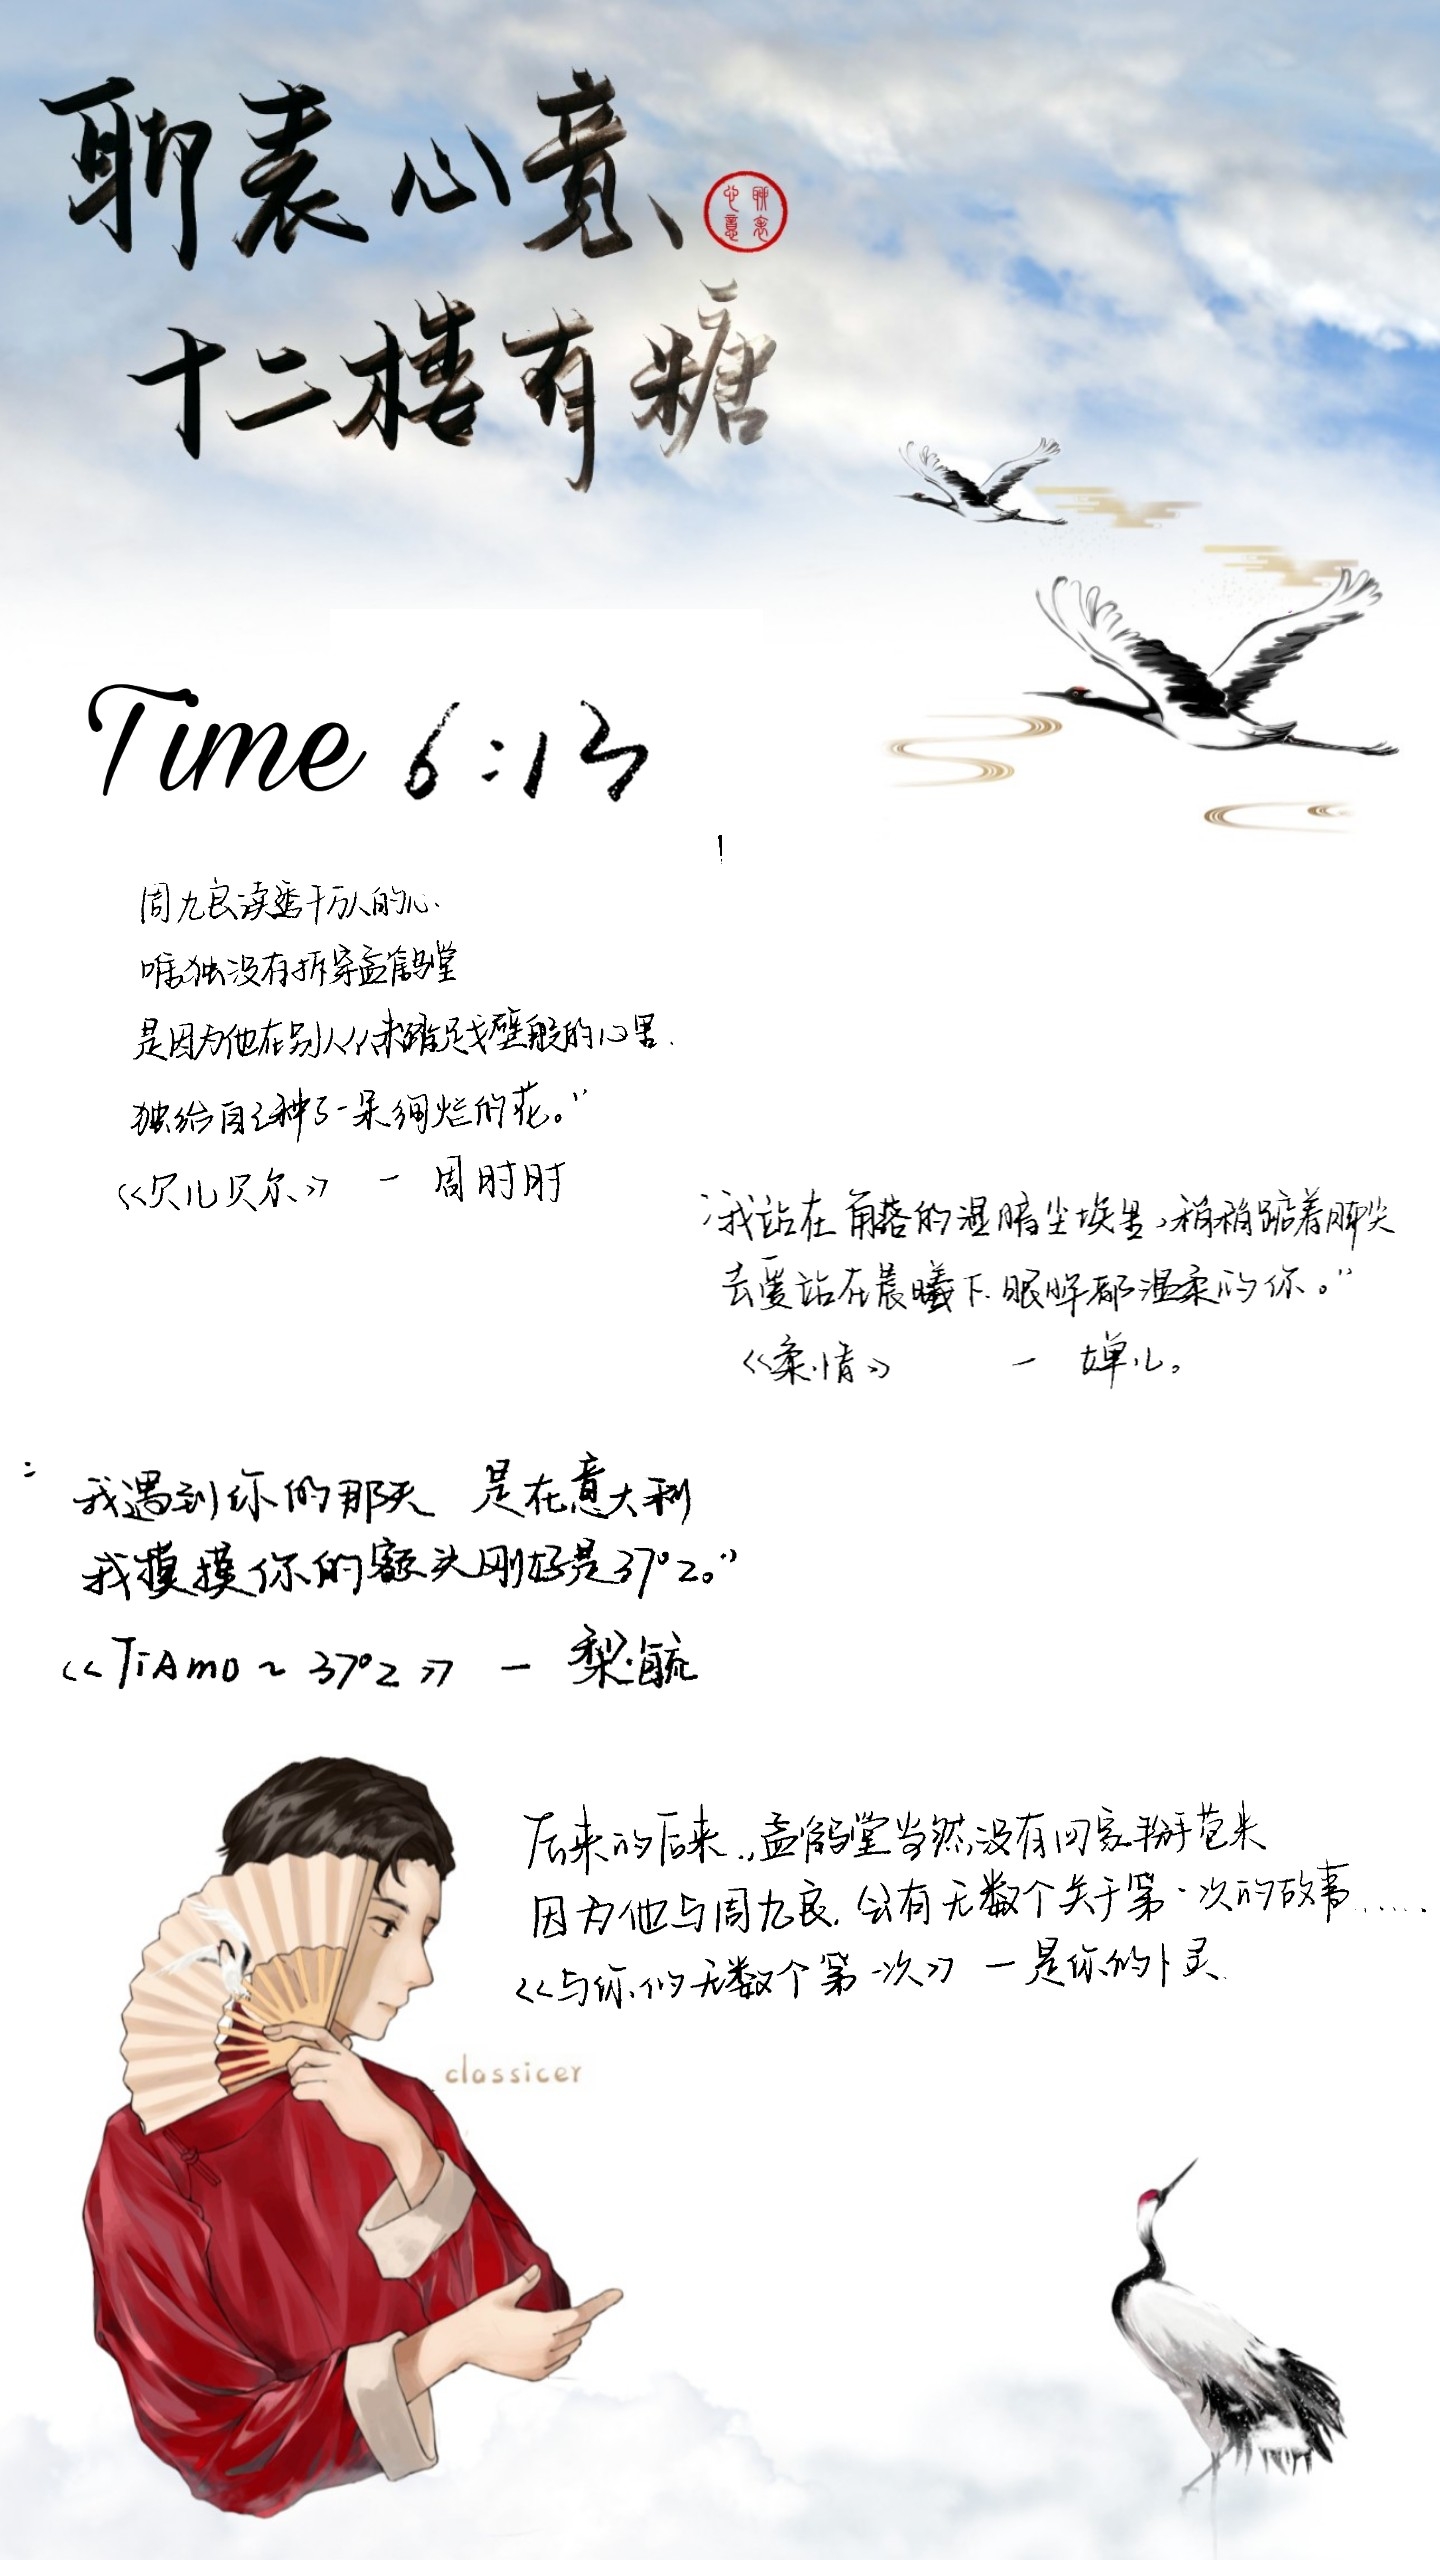 聊表心意、
聊表
心意
十二楼有糖
Time 6:13
周九良读透千万人的心.
唯独没有拆穿孟鹤堂
是因为他在别人从未踏足戈壁般的心里.
独给自己种了一朵绚烂的花。”
《贝儿贝尔》 — 周时时
我站在角落的湿暗尘埃里,稍稍踮着脚尖
去爱站在晨曦下.眼眸都温柔的你。”
《柔情》 — 婵儿。
我遇到你的那天 是在意大利
我摸摸你的额头刚好是37°2。”
《TiAmo~37°2》 — 梨毓
后来的后来.,孟鹤堂当然没有回家掰苞米
因为他与周九良.会有无数个关于第一次的故事......
《与你的无数个第一次》 — 是你的卜灵.
classicer